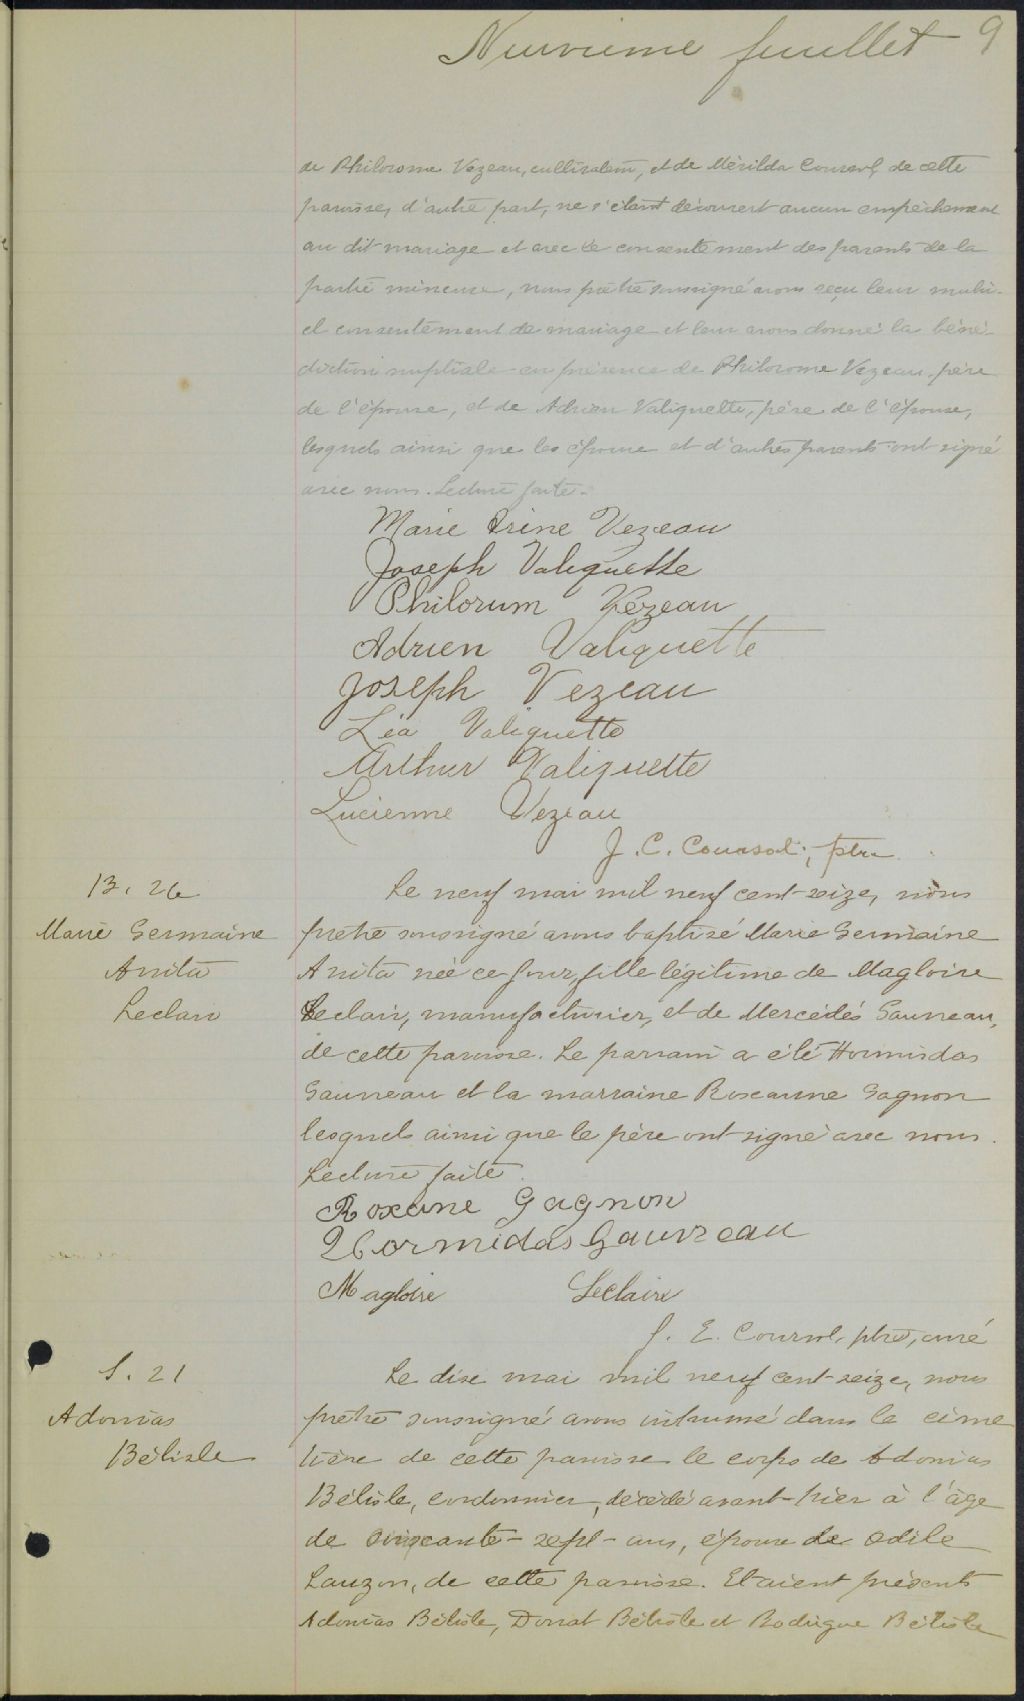 Neuvième feuillet 9
de Philorome Vezeau, cultivateur, et de Mérilda Coursol, de cette
paroisse, d'autre part, ne s'étant découvert aucun empêchement
au dit mariage et avec le consentement des parents de la
partie mineure, nous prêtre soussigné avons reçu leur mutu-
el consentement de mariage et leur avons donné la béné-
diction nuptiale en présence de Philorome Vezeau, père
de l'épouse, et de Adrien Valiquette, père de l'épouse,
lesquels ainsi que les époux et d'autres parents ont signé
avec nous. Lecture faite.
Marie Irène Vezeau
Joseph Valiquette
Philorum Vezeau
Adrien Valiquette
Joseph Vezeau
Léa Valiquette
Arthur Valiquette
Lucienne Vezeau
J. C. Coursol, ptre
B. 26
Marie Germaine
Anita
Leclair
Le neuf mai mil neuf cent-seize, nous
prêtre soussigné avons baptisé Marie Germaine
Anita née ce jour, fille légitime de Magloire
Leclair, manufacturier, et de Mercédès Gauvreau,
de cette paroisse. Le parrain a été Hormisdas
Gauvreau et la marraine Roseanne Gagnon
lesquels ainsi que le père ont signé avec nous.
Lecture faite.
Roxane Gagnon
Hormidas Gauvreau
Magloire Leclaire
J. E. Coursol, ptre, curé
S. 21
Adonias
Bélisle
Le dix mai mil neuf cent-seize, nous
prêtre soussigné avons inhumé dans le cime
tière de cette paroisse le corps de Adonias
Bélisle, cordonnier, décédé avant-hier à l'âge
de cinqcante-sept-ans, époux de Odile
Lauzon, de cette paroisse. Etaient présents
Adonias Bélisle, Donat Bélisle et Rodrigue Bélisle